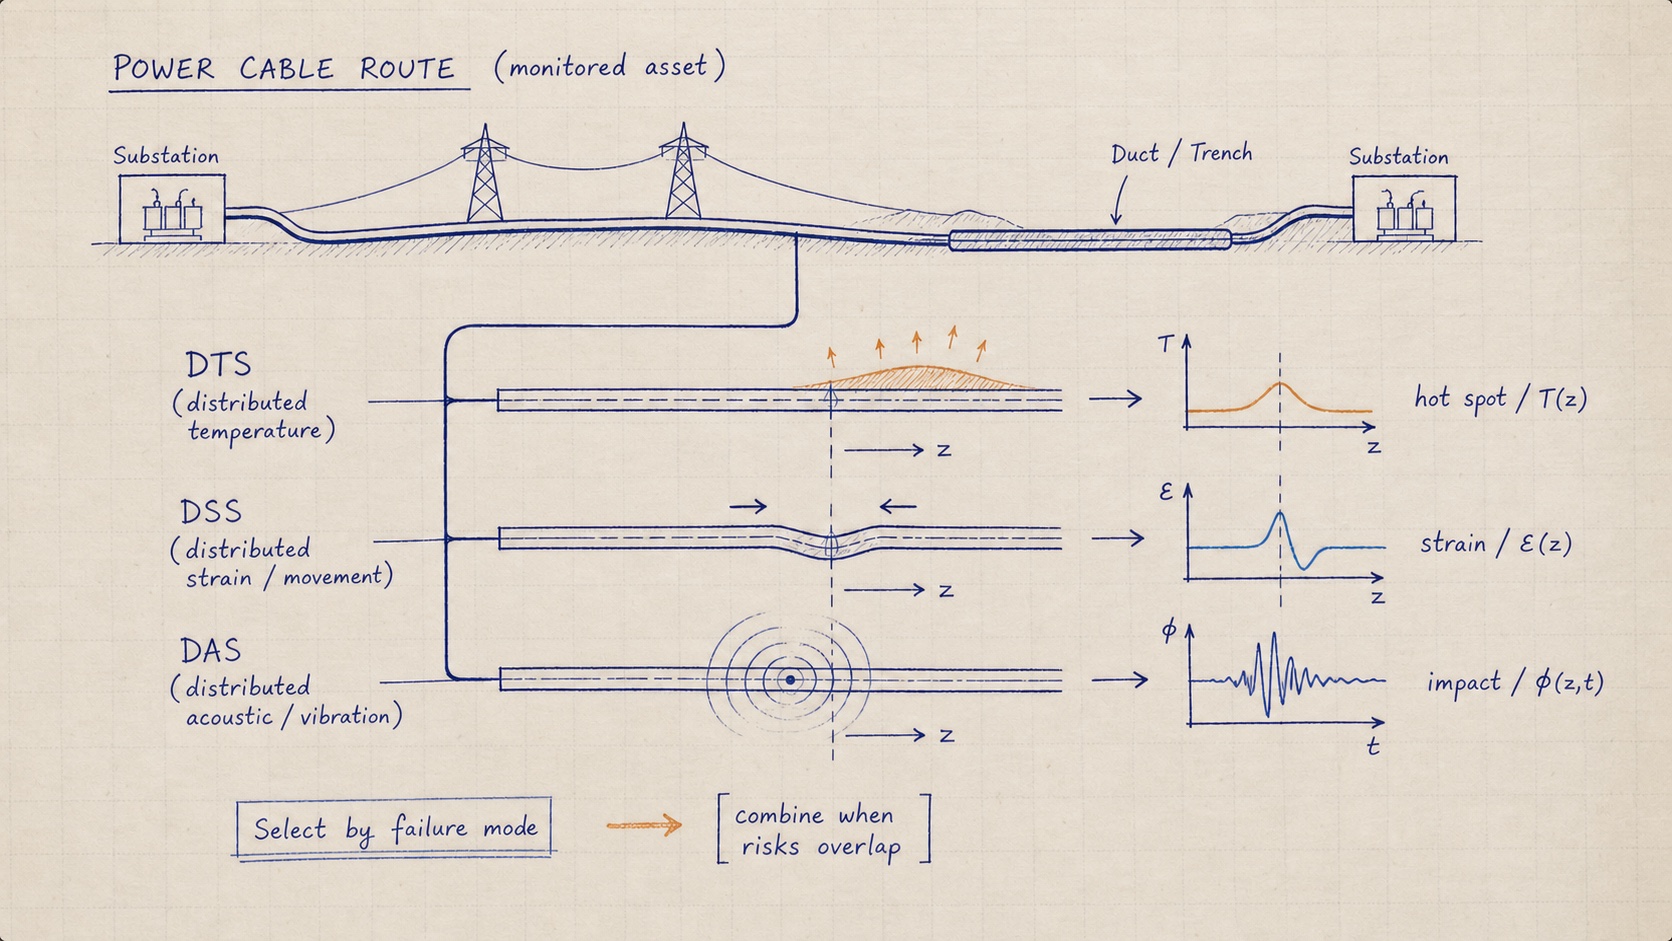 POWER CABLE ROUTE (monitored asset)
Substation
Duct / Trench
Substation
DTS
(distributed
temperature)
z
T
z
hot spot / T(z)
DSS
(distributed
strain / movement)
z
ε
z
strain / ε(z)
DAS
(distributed
acoustic / vibration)
z
ϕ
t
impact / ϕ(z,t)
Select by failure mode
[combine when
risks overlap]